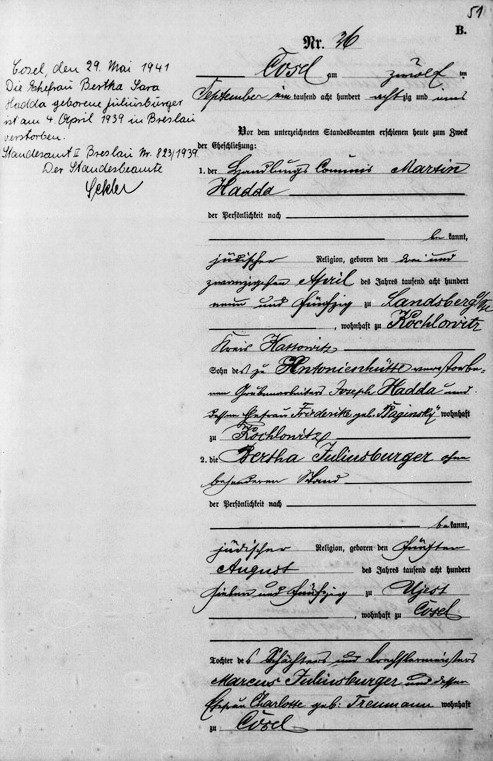 51
B.
Nr. 26
Cosel, den 29. Mai 1941
Die Ehefrau Bertha Sara
Hadda geborene Juliusburger
ist am 4. April 1939 in Breslau
verstorben.
Standesamt II Breslau Nr. 823/1939.
Der Standesbeamte
Cosel am zwölf ten
September ein tausend acht hundert acht zig und
Vor dem unterzeichneten Standesbeamten erschienen heute zum Zweck
der Eheschließung:
1. der Handlungs Commis Martin
Hadda
der Persönlichkeit nach
be kannt,
jüdischer Religion, geboren den drei und
zwanzigsten April des Jahres tausend acht hundert
neun und fünfzig zu Landsberg O/S
, wohnhaft zu Kochlowitz
Kreis Kattowitz
Sohn des zu Antonienhütte verstorbe-
nen Grubenarbeiters Joseph Hadda und
dessen Ehefrau Friederike geb. "Waginsky" wohnhaft
zu Kochlowitz
2. die Bertha Juliusburger ohne
besonderen Stand
der Persönlichkeit nach
bekannt,
jüdischer Religion, geboren den fünften
August des Jahres tausend acht hundert
sieben und fünfzig zu Ujest
, wohnhaft zu Cosel
Tochter des Schächters und Drechslermeisters
Marcus Juliusburger und dessen
Ehefrau Charlotte geb: Freumann wohnhaft
zu Cosel